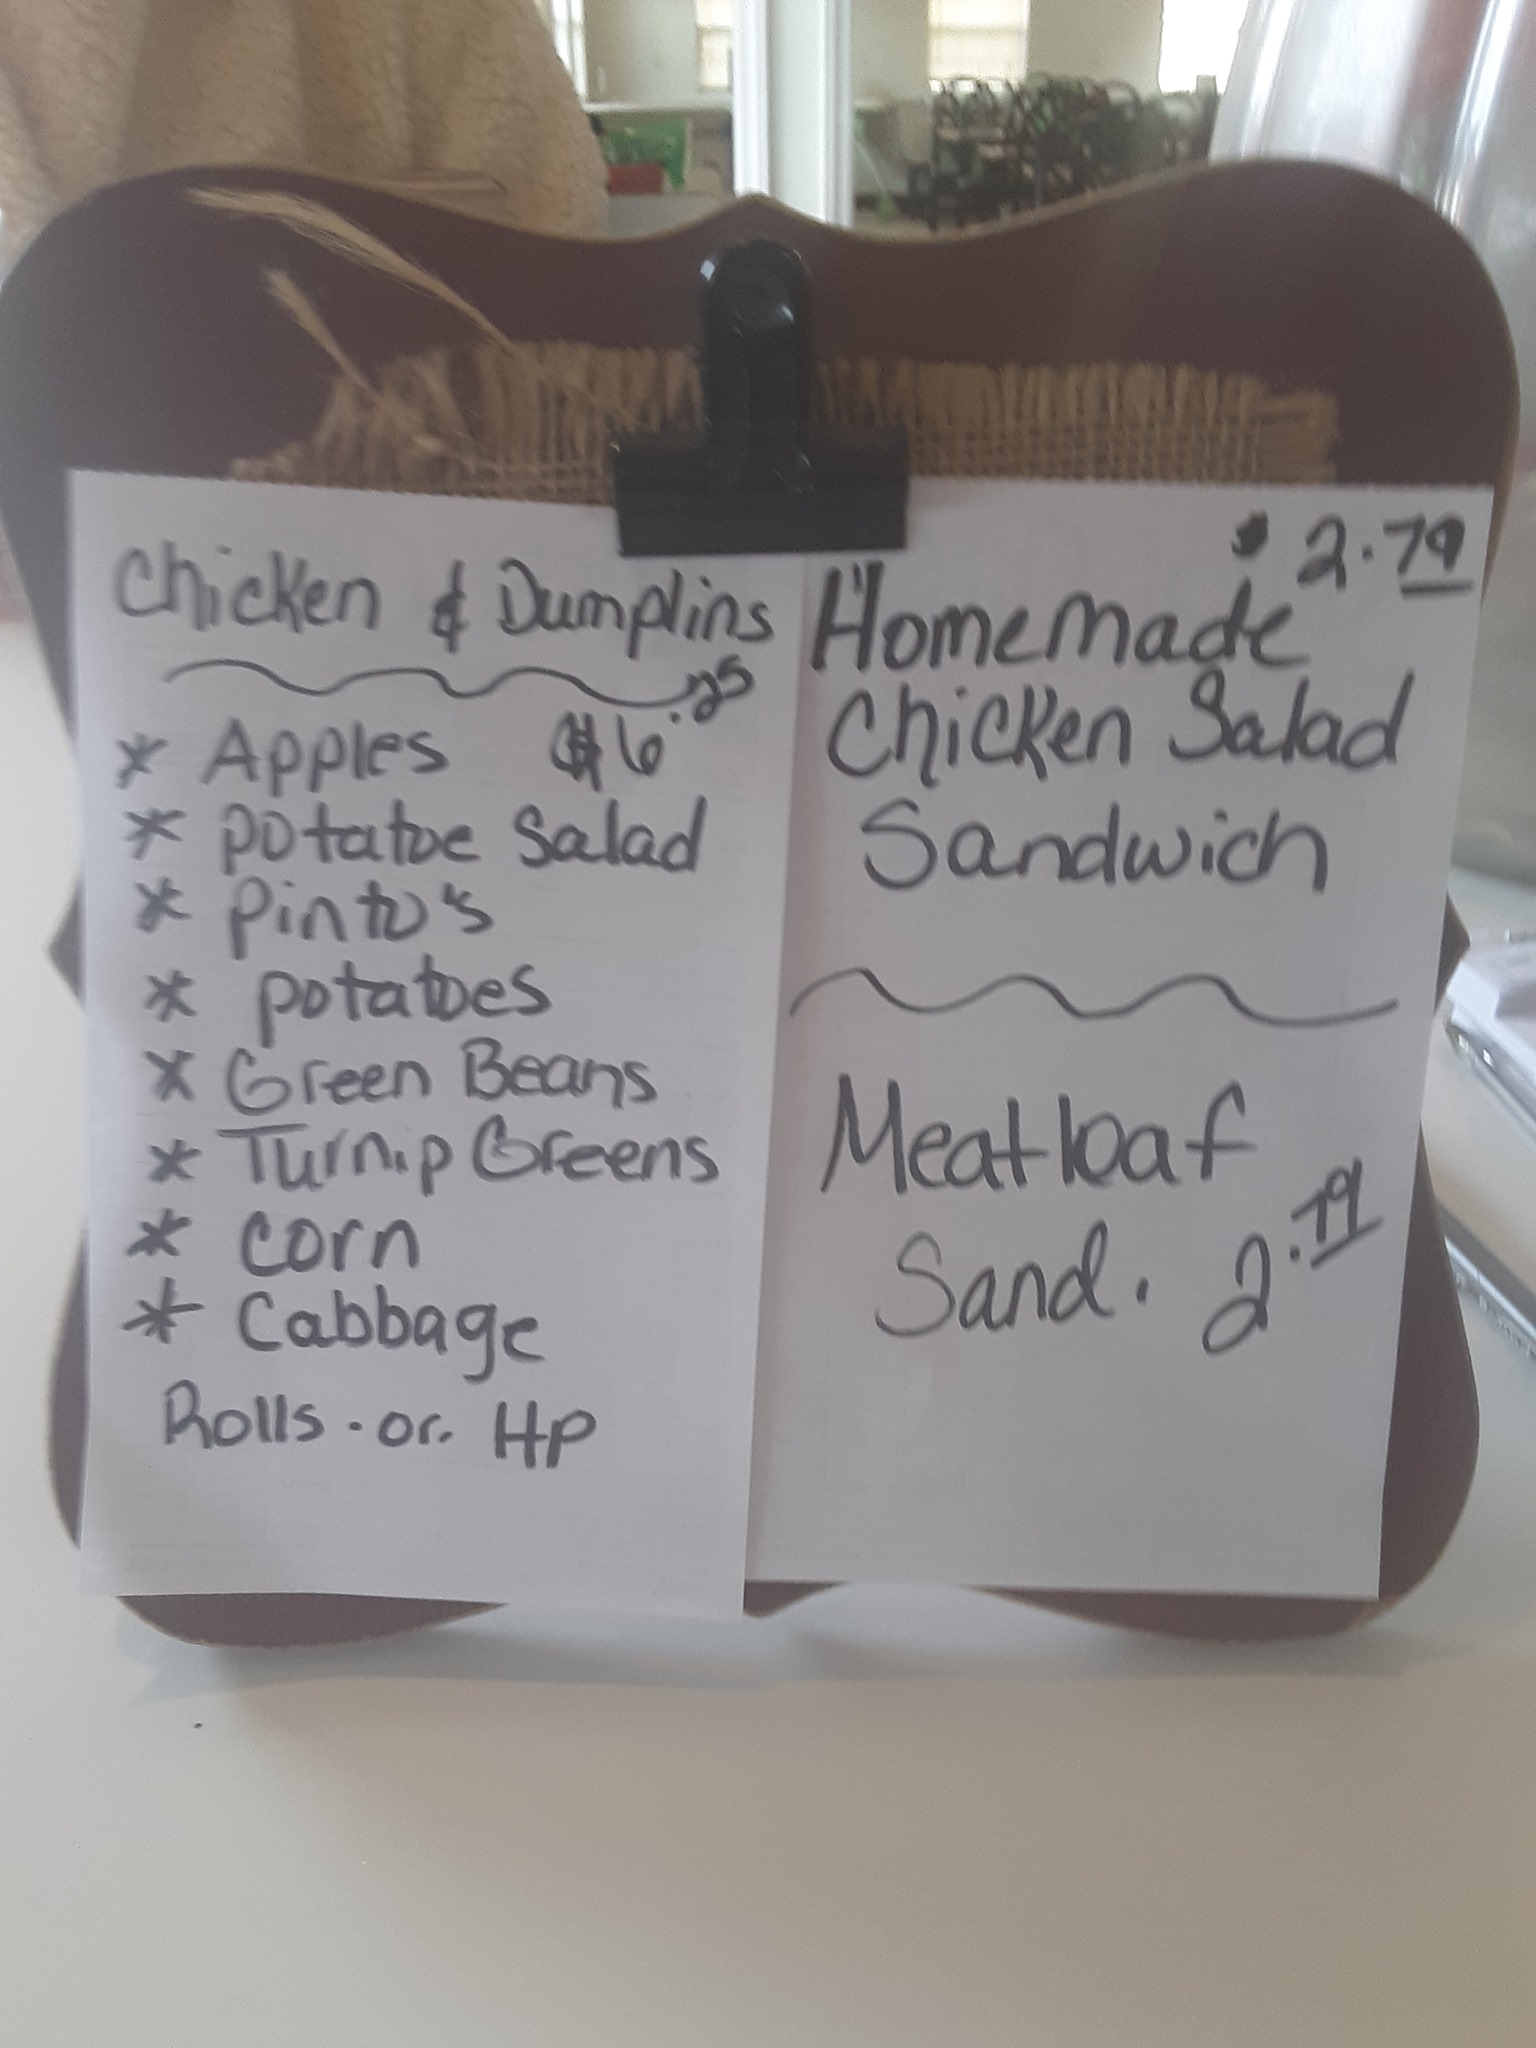 Chicken & Dumplins
$6.25
* Apples
* potatoe Salad
* Pinto's
* potatoes
* Green Beans
* Turnip Greens
* Corn
* Cabbage
Rolls . or. HP
$ 2.79
Homemade
Chicken Salad
Sandwich
Meatloaf
Sand. 2.79